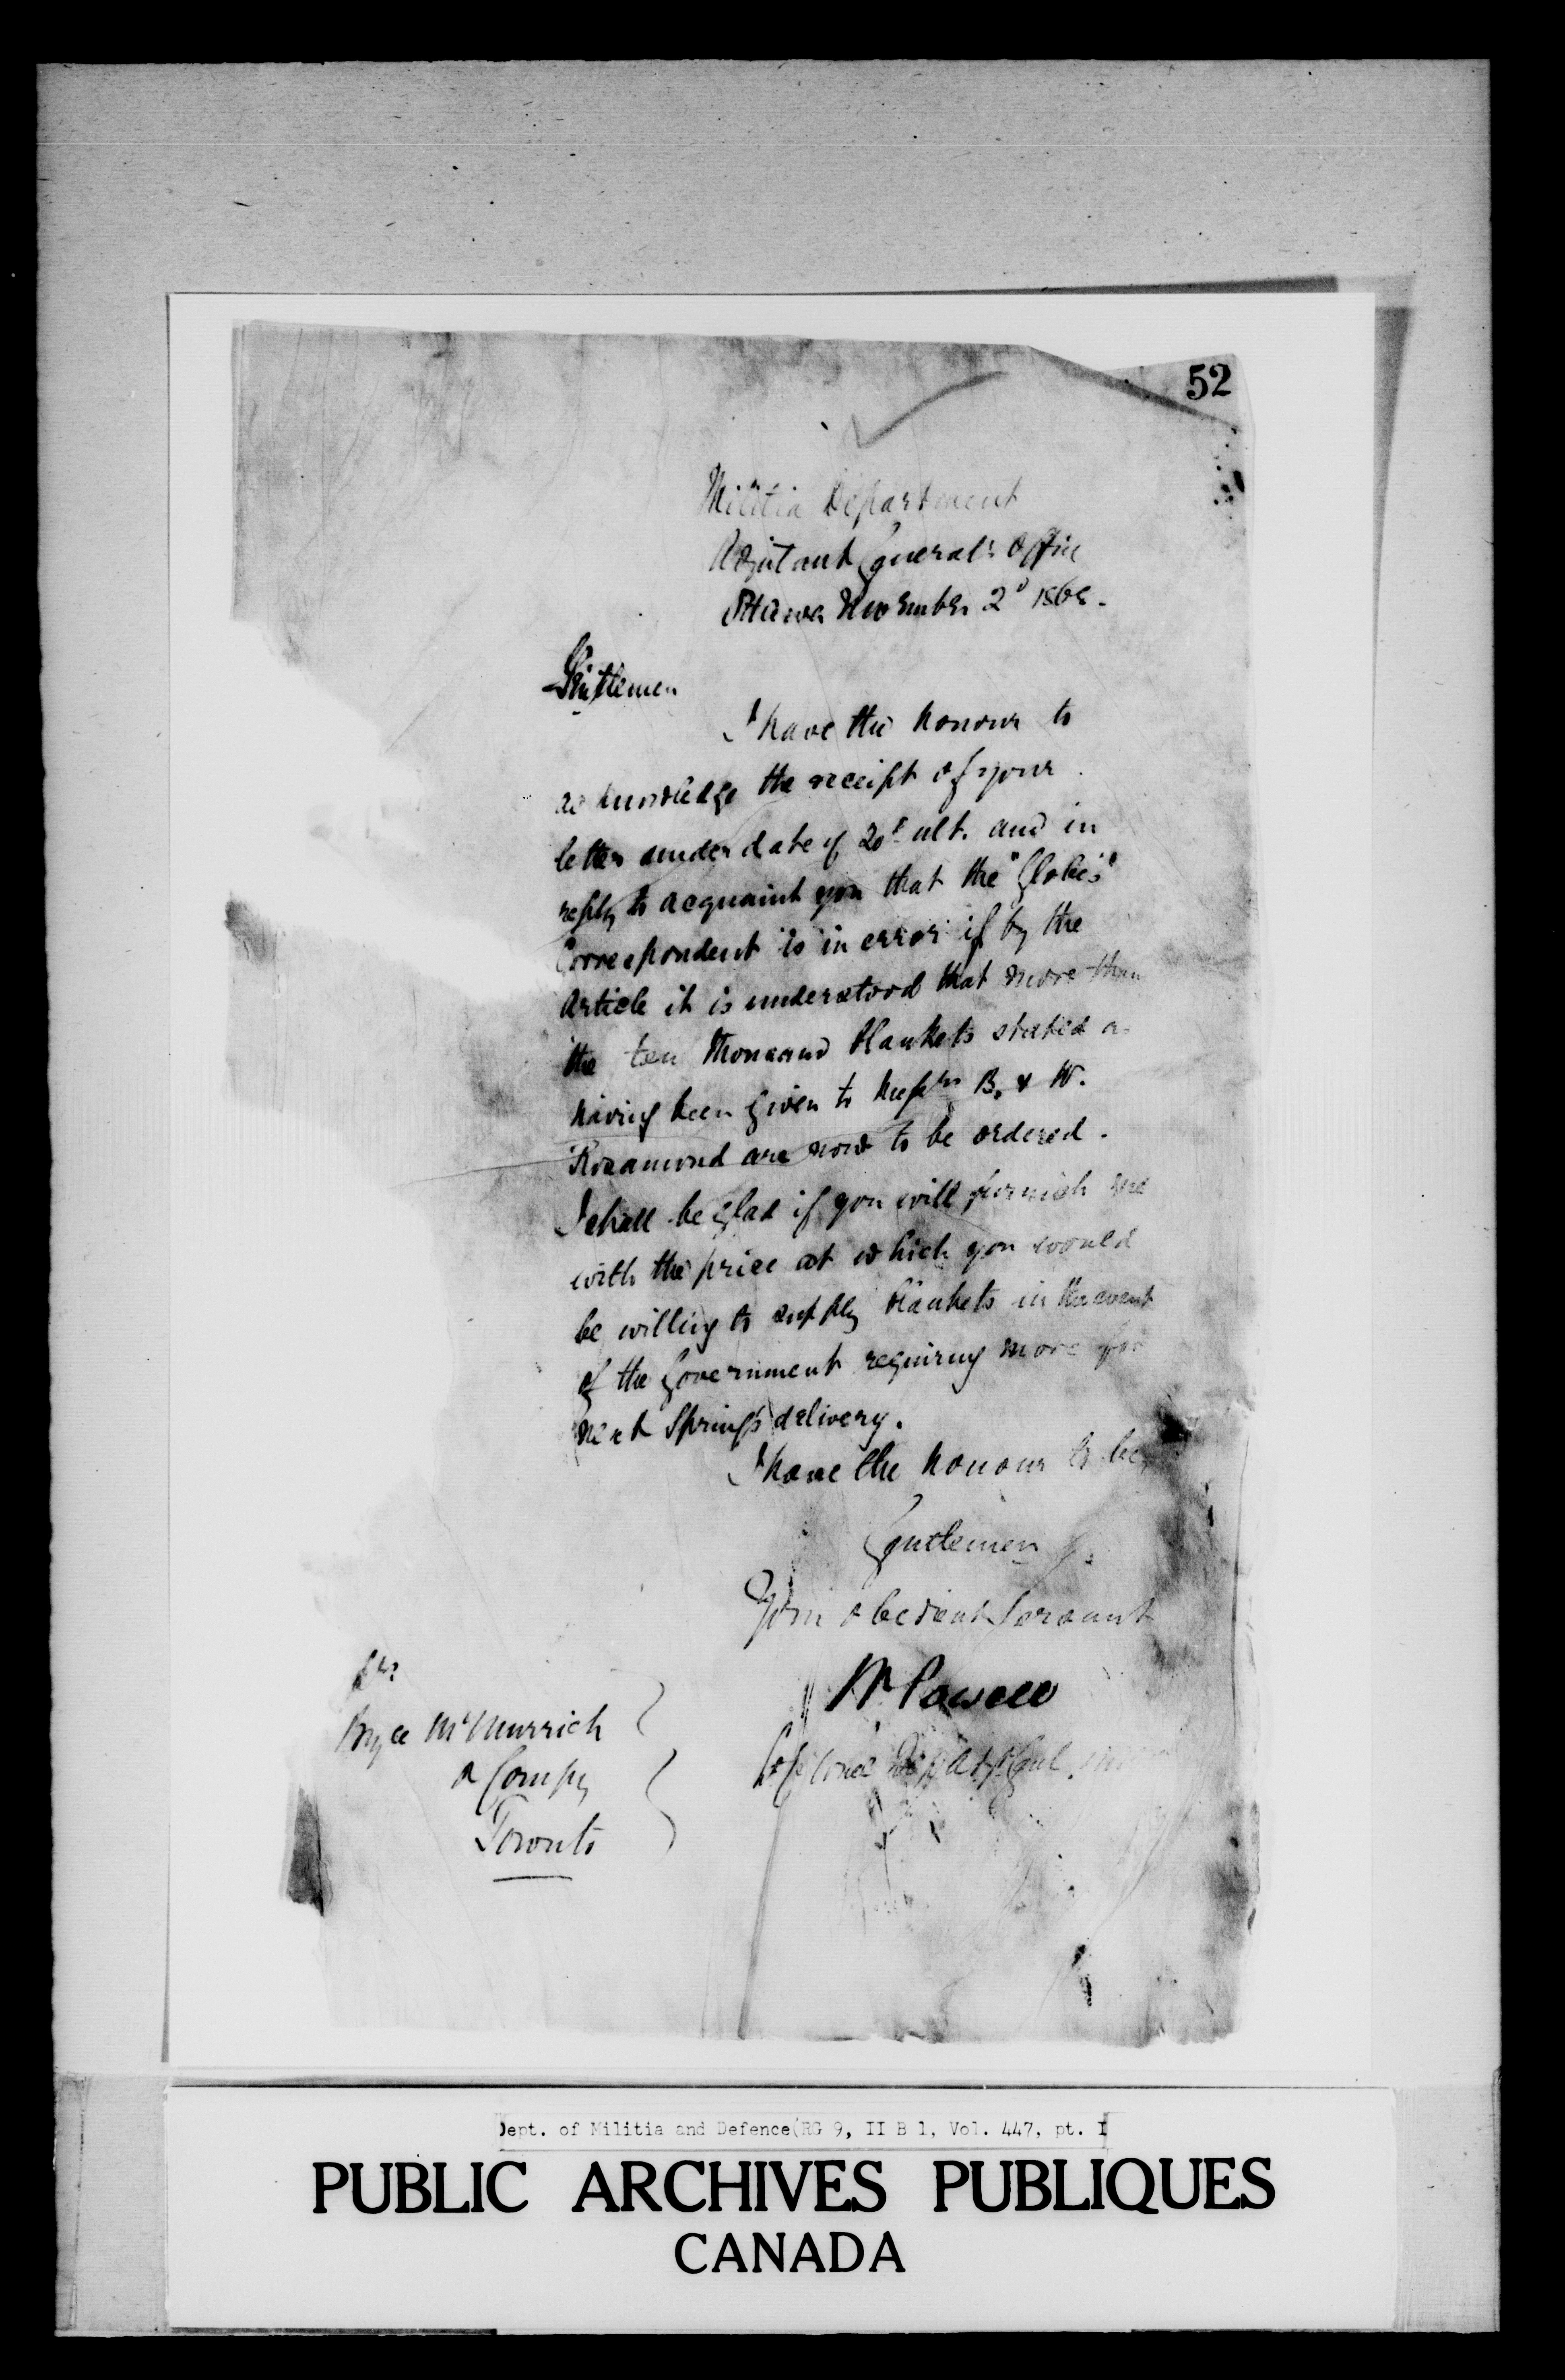 52
Militia Department
Adjutant General's Office
Ottawa November 2d 1868.
Gentlemen
I have the honour to
acknowledge the receipt of your
letter under date of 20t ult. and in
reply to acquaint you that the "Globe's"
Correspondent is in error if by the
Article it is understood that more than
the ten thousand blankets stated as
having been given to Messrs B. & W.
Rosamond are now to be ordered.
I shall be glad if you will furnish me
with the price at which you would
be willing to supply blankets in the event
of the Government requiring more for
next Spring's delivery.
I have the honour to be
Gentlemen
Your obedient Servant
W Powell
Lt Colonel Dep. Adjt Genl
Bryce McMurrich
& Compy
Toronto
Dept. of Militia and Defence(RG 9, II B 1, Vol. 447, pt. I
PUBLIC ARCHIVES PUBLIQUES
CANADA